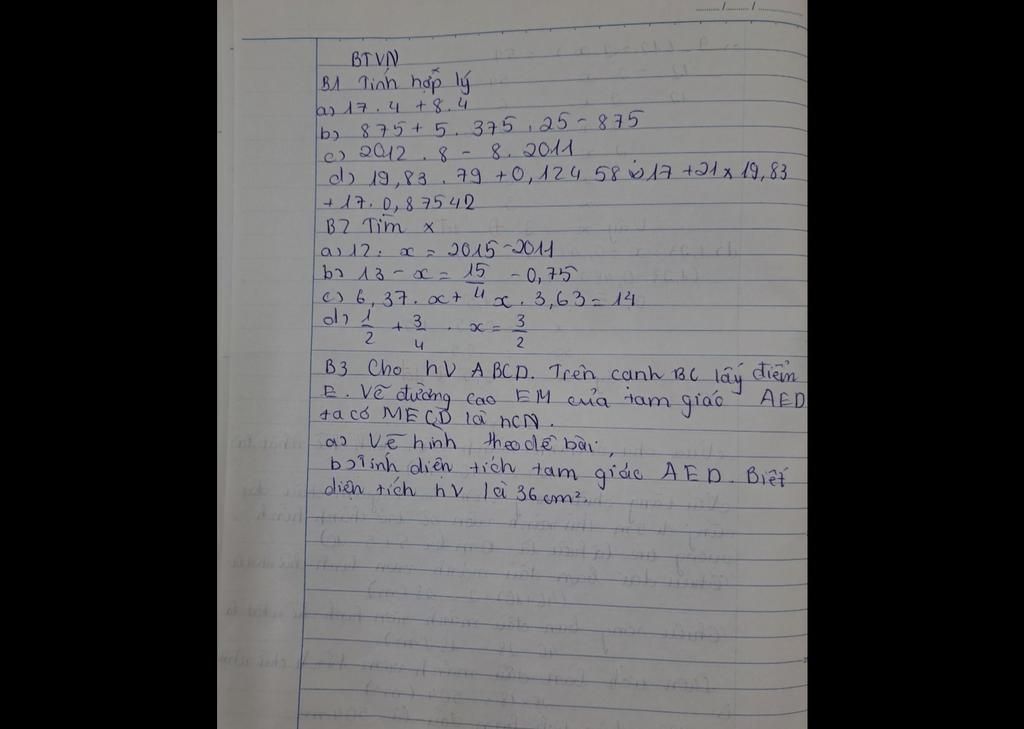 BTVN
B1 Tính hợp lý
a) 17.4 + 8.4
b) 875 + 5. 375 . 25 - 875
c) 2012 . 8 - 8. 2011
d) 19,83 . 79 + 0,124 58 17 + 21 x 19,83
+ 17. 0,87542
B2 Tìm x
a) 12: x = 2015 - 2011
b) 13 - x = 15/4 - 0,75
c) 6,37. x + x . 3,63 = 14
d) 1/2 + 3/4 . x = 3/2
B3 Cho hV ABCD. Trên cạnh BC lấy điểm
E. Vẽ đường cao EM của tam giác AED
ta có MECD là hCN.
a) Vẽ hình theo đề bài,
b) Tính diện tích tam giác AED. Biết
diện tích hV là 36 cm².